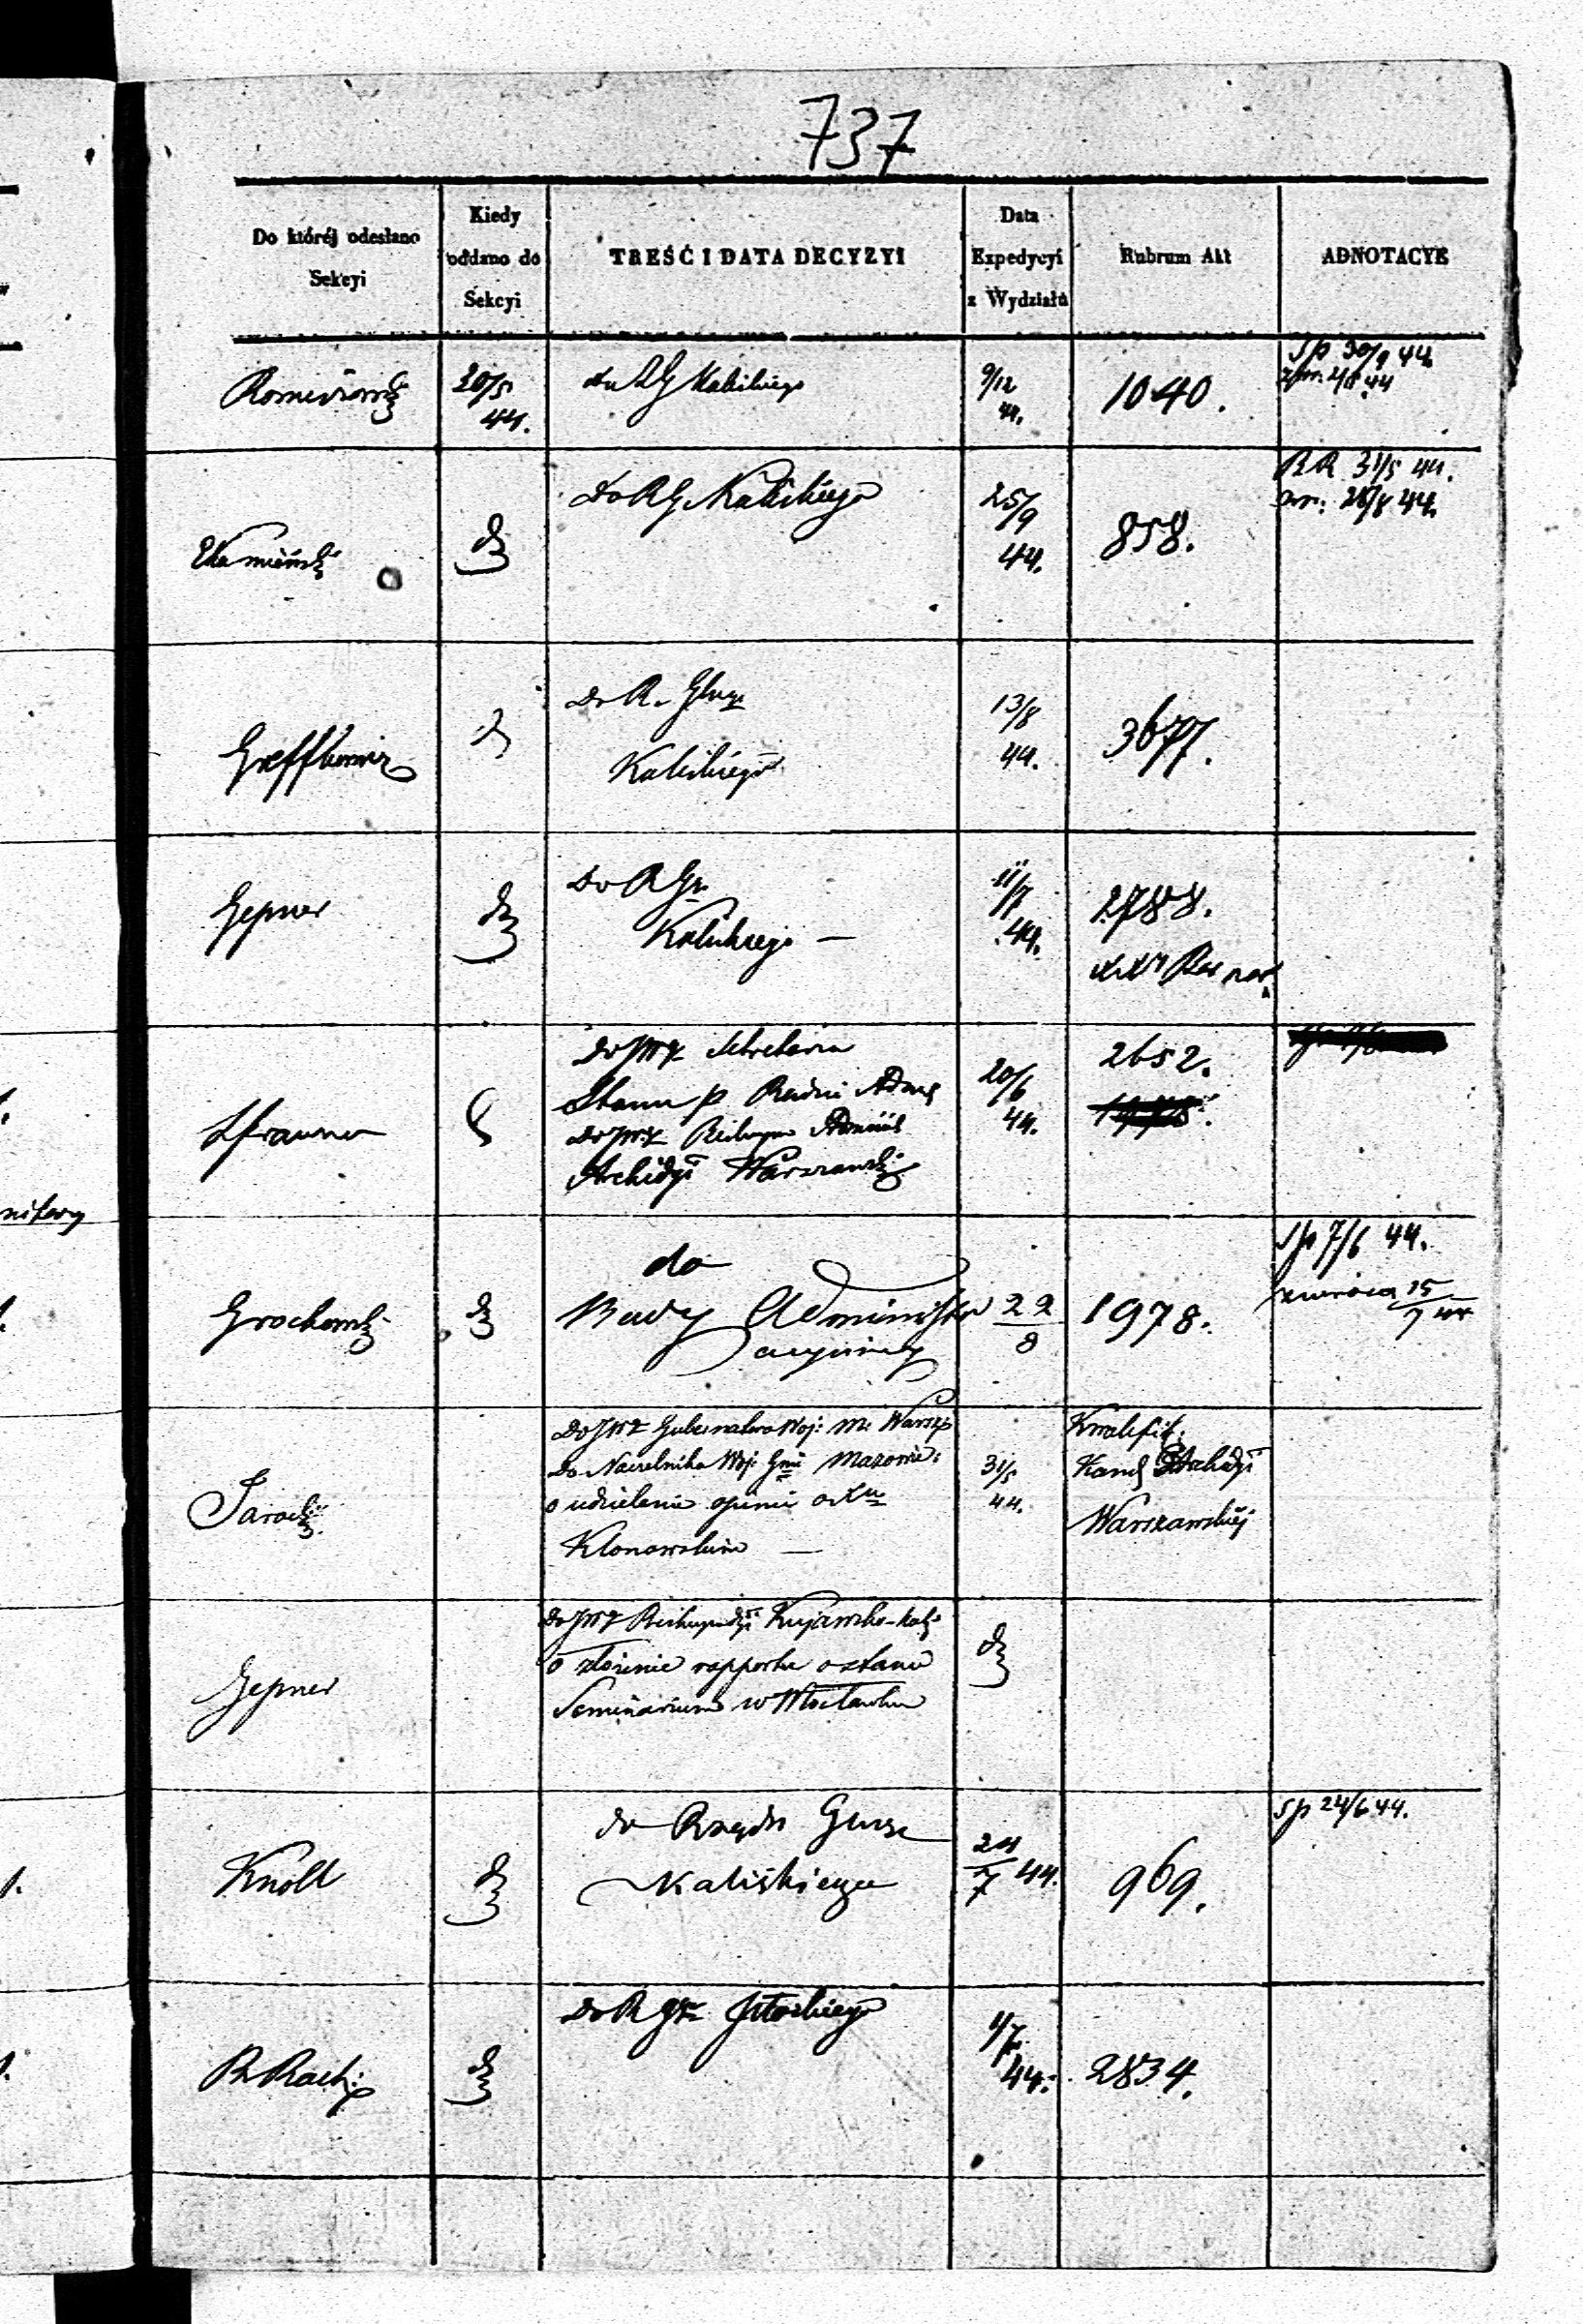 737
Do któréj odesłano Sekcyi
Kiedy oddano do Sekcyi
TREŚĆ I DATA DECYZYI
Data Expedycyi z Wydziału
Rubrum Akt
ADNOTACYE
20/5 44.
do RG Kaliskiego
9/12 44.
1040.
Sp 30/9 44
Kamiński
Do RG Kaliskiego
25/9 44.
858.
RR 31/5 44.
28/8 44
Do R. Gbug
Kaliskiego
13/8 44.
3677.
Gepner
Do R Gb.
Kaliskiego —
11/7 44.
2788.
Do JW Sekretarza
Stanu p Radzie Admi
Do JW Biskupa Admini
Archidyi Warszawski
20/6 44.
2652.
Grochowski
do
Rady Administra
cyjnej
22/8
1978.
Sp 7/6 44.
zwróca 15/7 44
Jarocki
Do JW Gubernatora Woj: M: Warsz
Do Naczelnika Woj: Gnii Mazowie:
o udzielenie opinii o X
Klonowskim —
31/5 44.
Kwalifik:
Kand Archidyi
Warszawskiéj
Gepner
Do JW Biskupa dyi Kujawsko-Kali
o złożenie rapportu o stanie
Seminarium w Włocławku
Knoll
do Rządu Gub
Kaliskiego
24/7 44.
969.
Sp 24/6 44.
Do R Gb Płockiego
1/7 44.
2834.